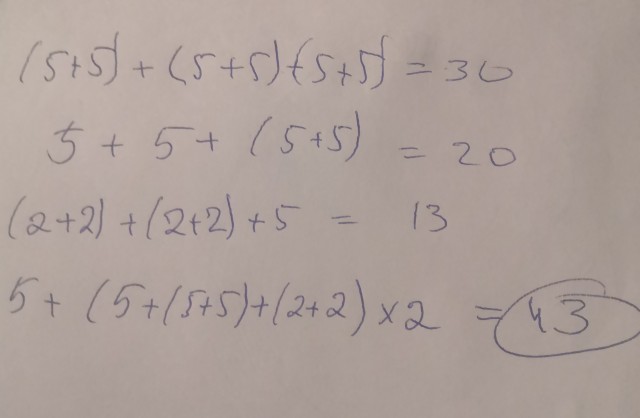 (5+5) + (5+5)+(5+5) = 30
5 + 5 + (5+5) = 20
(2+2) + (2+2) + 5 = 13
5 + (5+(5+5)+(2+2) × 2 = 43